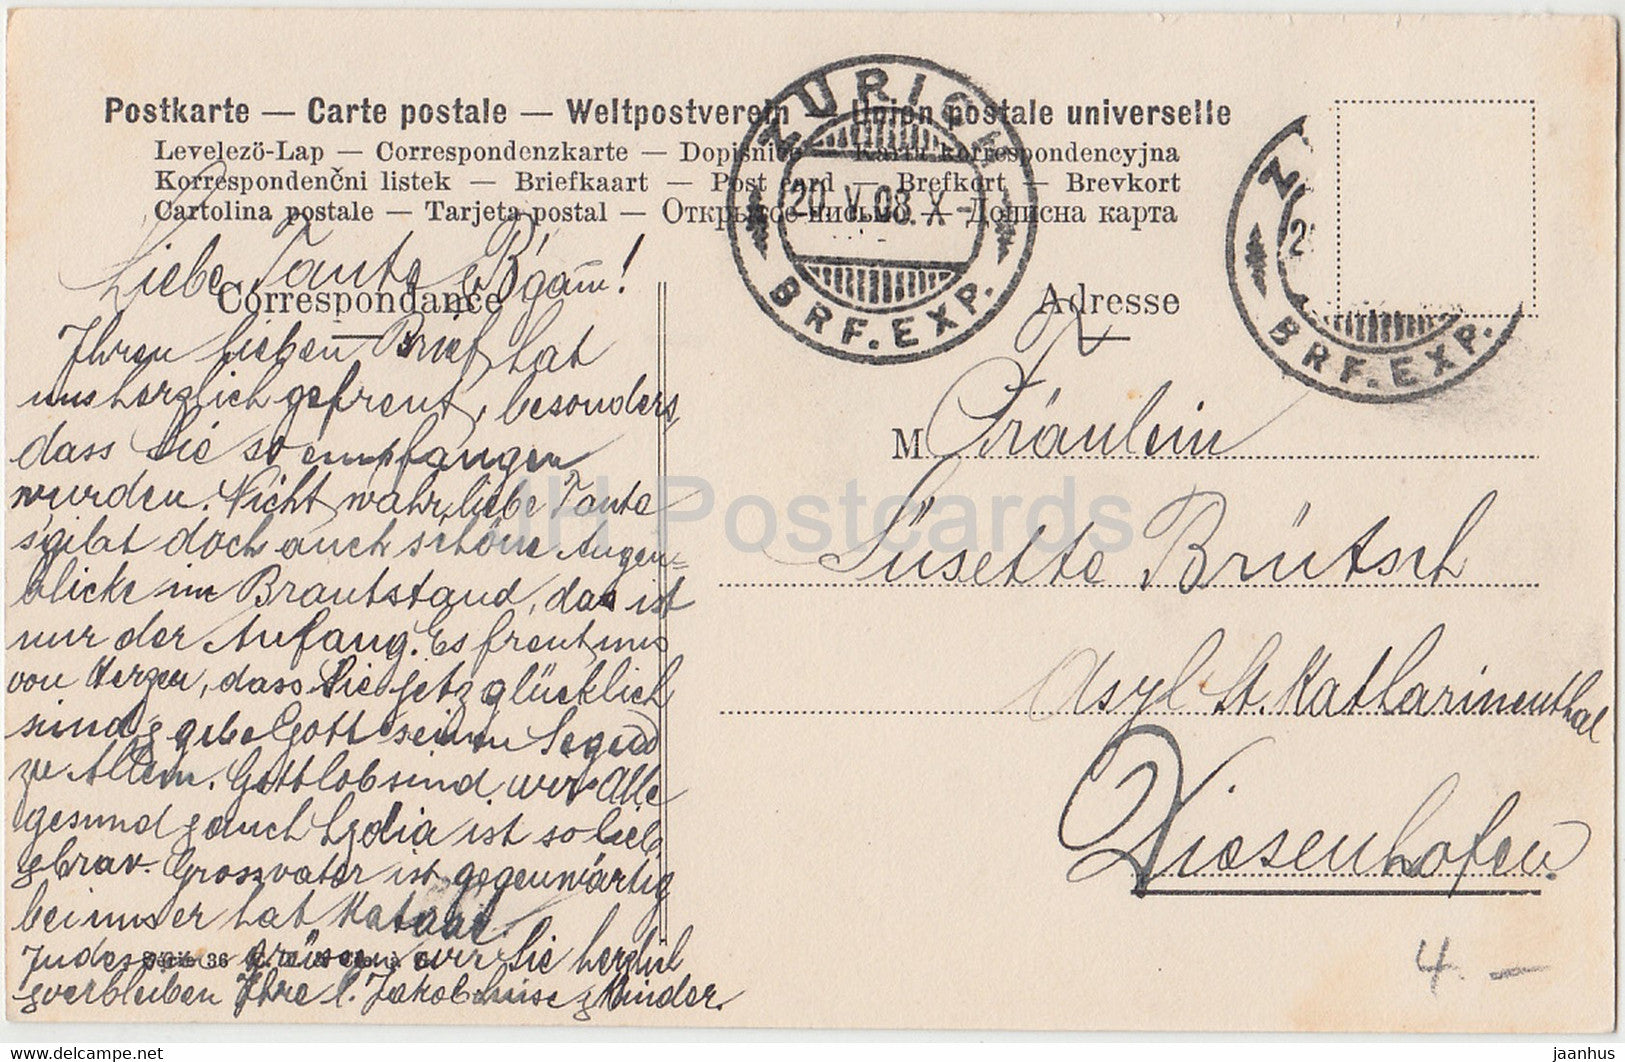 Postkarte — Carte postale — Weltpostverein — Union postale universelle
Levelező-Lap — Correspondenzkarte — Dopisnice — Karta korrespondencyjna
Korrespondenčni listek — Briefkaart — Post card — Brefkort — Brevkort
Cartolina postale — Tarjeta postal — Открытое письмо — Дописна карта
ZÜRICH
20. V. 08. X-
BRF. EXP.
BRF. EXP.
Correspondance
Adresse
Liebe Tante & B'gam!
Ihren lieben Brief hat
uns herzlich gefreut, besonders,
dass Sie so empfangen
wurden. Nicht wahr, liebe Tante
s'gibt doch auch schöne Augen=
blicke im Brautstand, das ist
nur der Anfang. Es freut uns
von Herzen, dass Sie jetz glücklich
sind & gebe Gott seinen Segen
zu Allem. Gottlob sind wir Alle
gesund & auch Lydia ist so lieb
& brav. Grossvater ist gegenwärtig
bei uns er hat Katarrh.
Indessen grüssen wir Sie herzlich
& verbleiben Ihre l. Jakob Luise & Kinder.
Serie 36
M Fräulein
Süsette Brütsch
Asyl St. Katharinenthal
Diesenhofen.
4. —
IH Postcards
www.delcampe.net
jaanhus